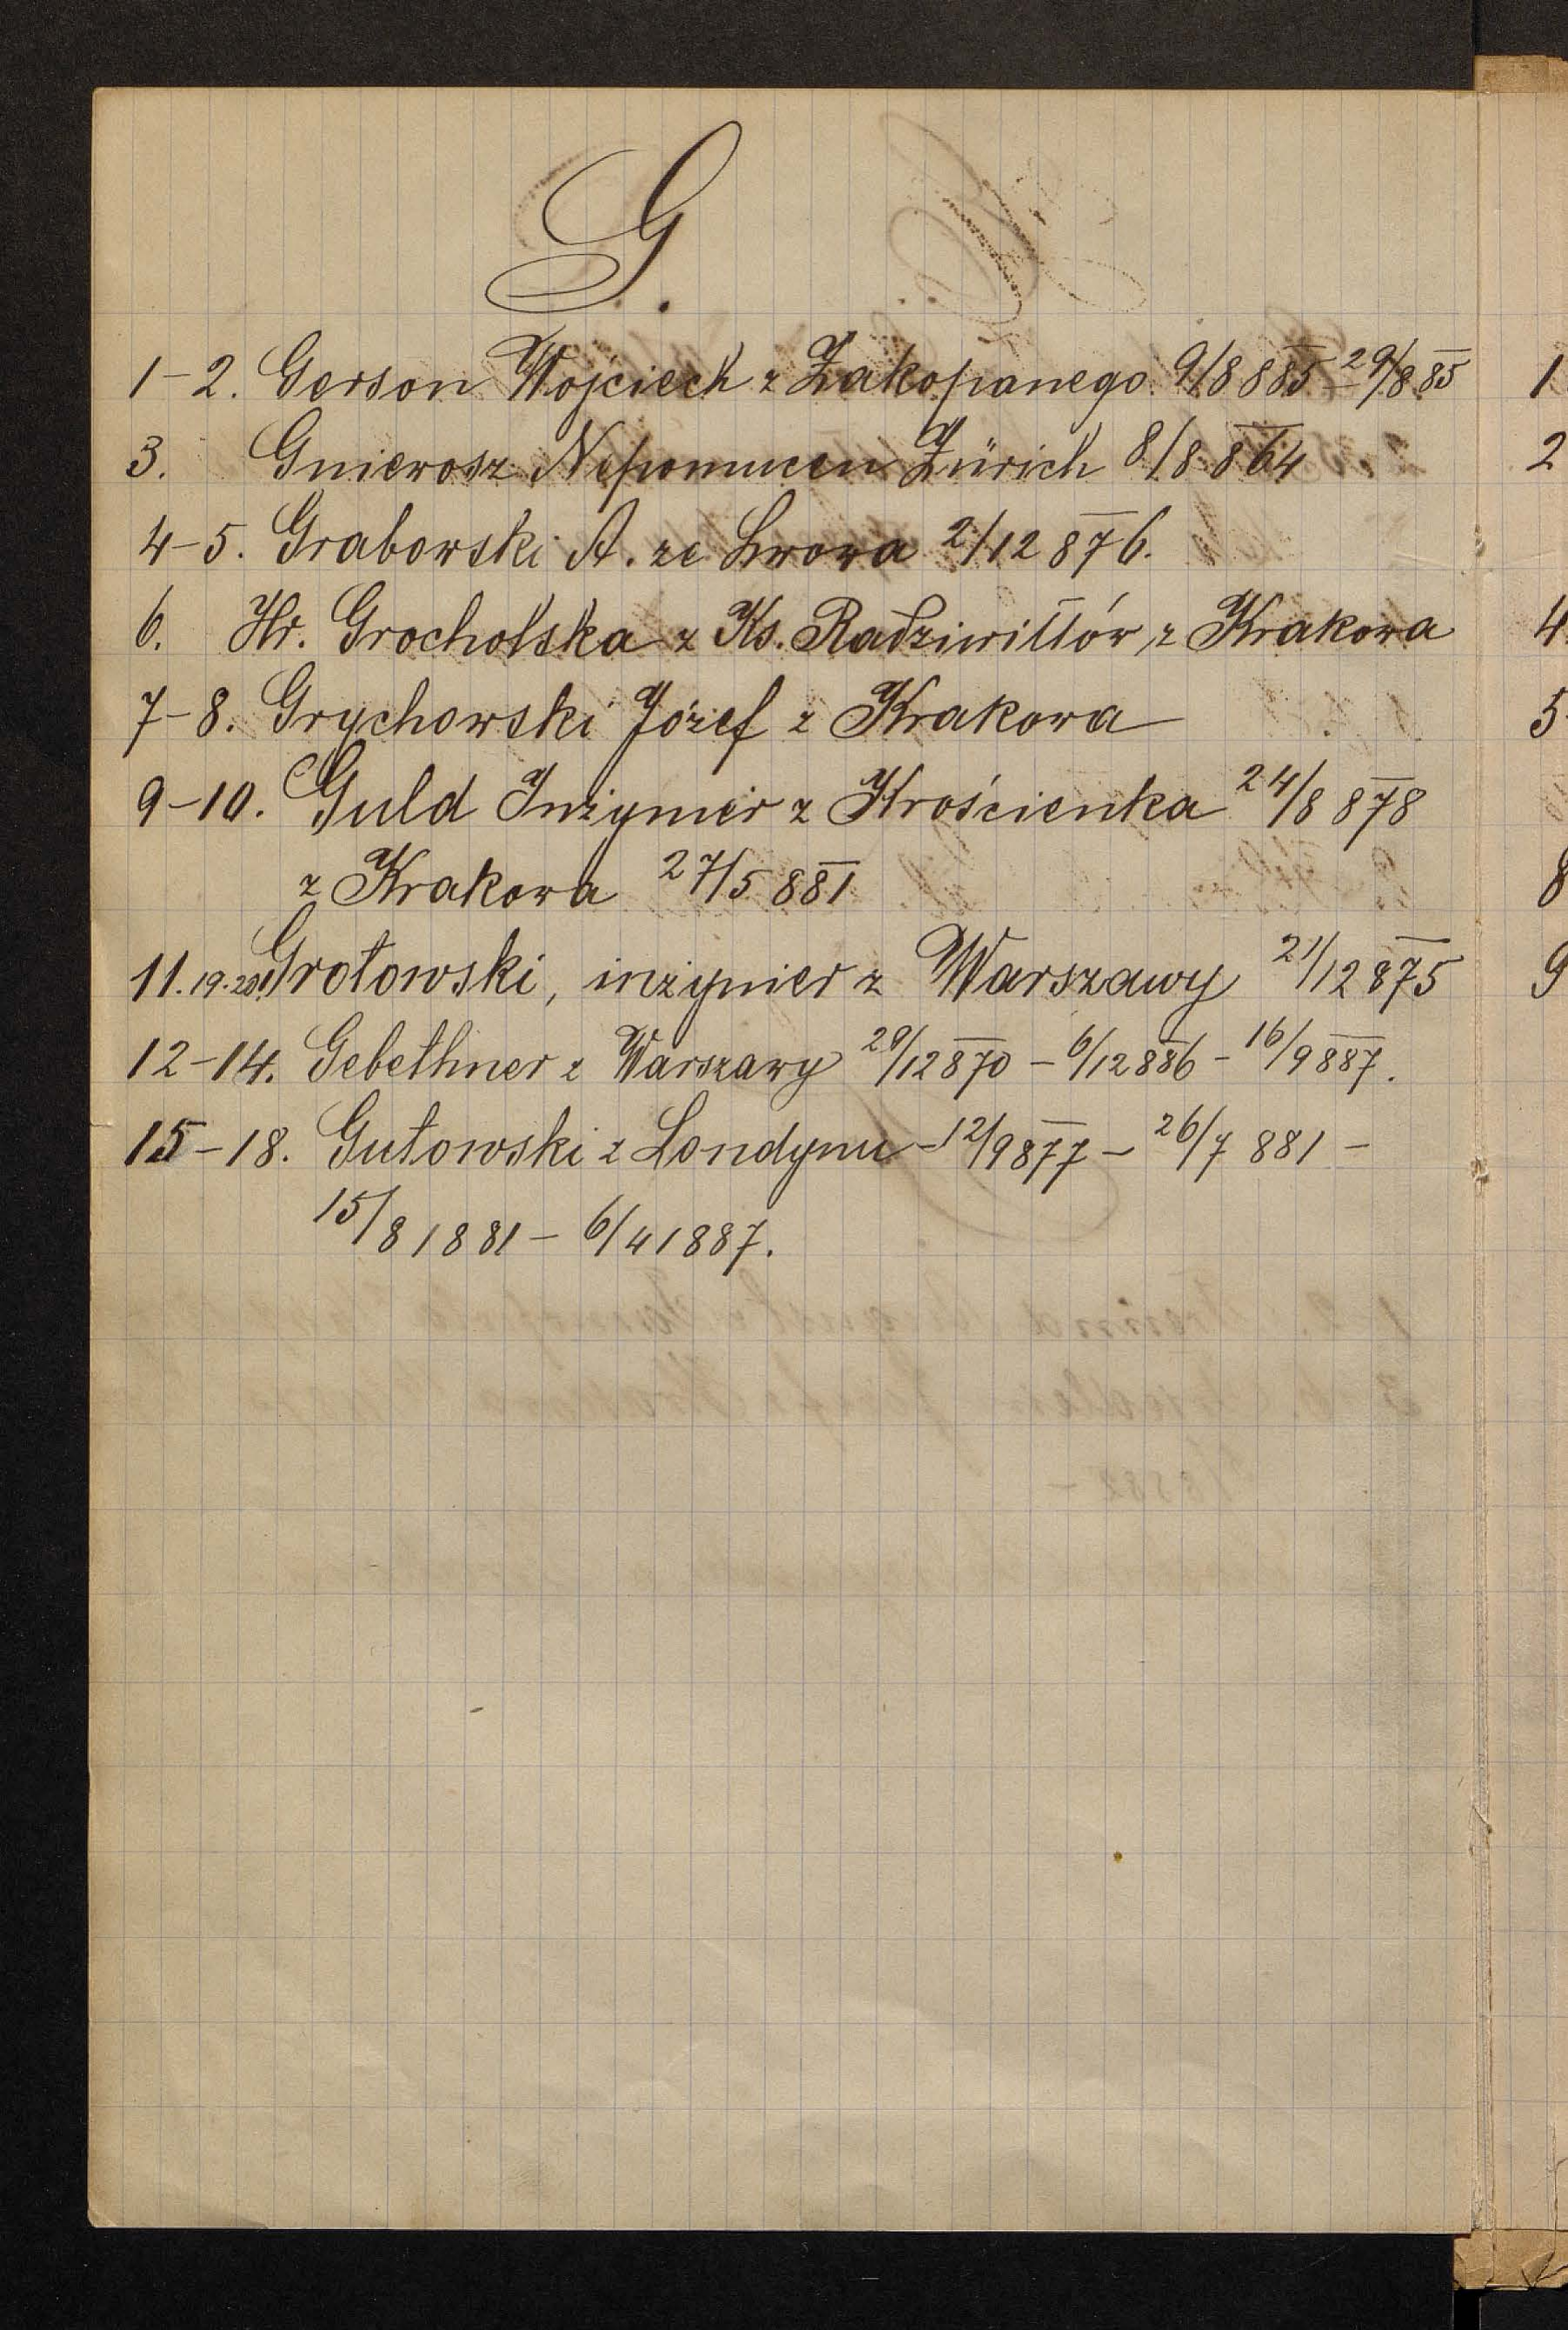 G.
1-2. Gerson Wojciech z Zakopanego 9/8 885 - 29/8 85
3. Gniewosz Nepomucen Zürich 8/8 864
4-5. Grabowski A. ze Lwowa 2/12 876.
6. Hr. Grocholska z Ks. Radziwiłłów, z Krakowa
7-8. Grychowski Józef z Krakowa
9-10. Guld Inżynier z Krościenka 24/8 878
z Krakowa 27/5 881
11.19.20. Grotowski, inżynier z Warszawy 21/12 875
12-14. Gebethner z Warszawy 20/12 870 - 6/12 886 - 16/9 887.
15-18. Gutowski z Londynu - 12/9 877 - 26/7 881 -
15/8 1881 - 6/4 1887.
1
2
4
5
8
9